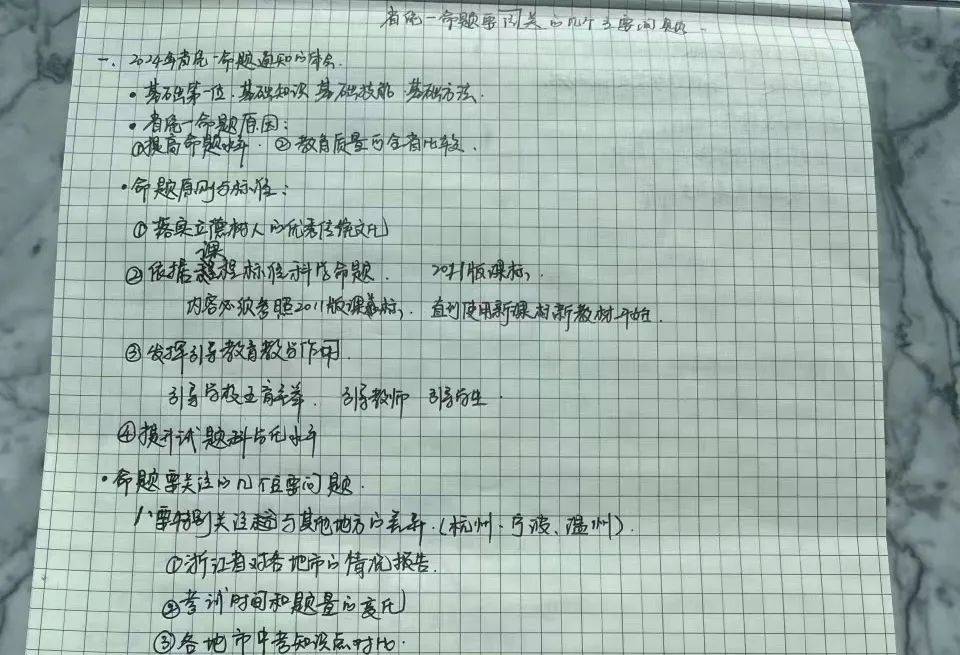 省统一命题要关的几个主要问题.
一、2024年省统一命题通知的体会.
• 基础第一位.基础知识 基础技能.基础方法.
• 省统一命题原因:
①提高命题水平. ②教育质量可全省比较.
• 命题原则与标准:
①落实立德树人的优秀传统文化
课
②依据程标准科学命题. 2011版课标,
内容必须参照2011版课标, 直到使用新课标新教材开始.
③发挥引导教育教学作用.
引导学校五育并举. 引导教师 引导学生.
④提升试题科学化水平
• 命题要关注的几个主要问题.
1、要特别关注与其他地方的差异.(杭州.宁波、温州).
①浙江省对各地市的情况报告.
②考试时间和题量的变化
③各地市中考知识点对比.